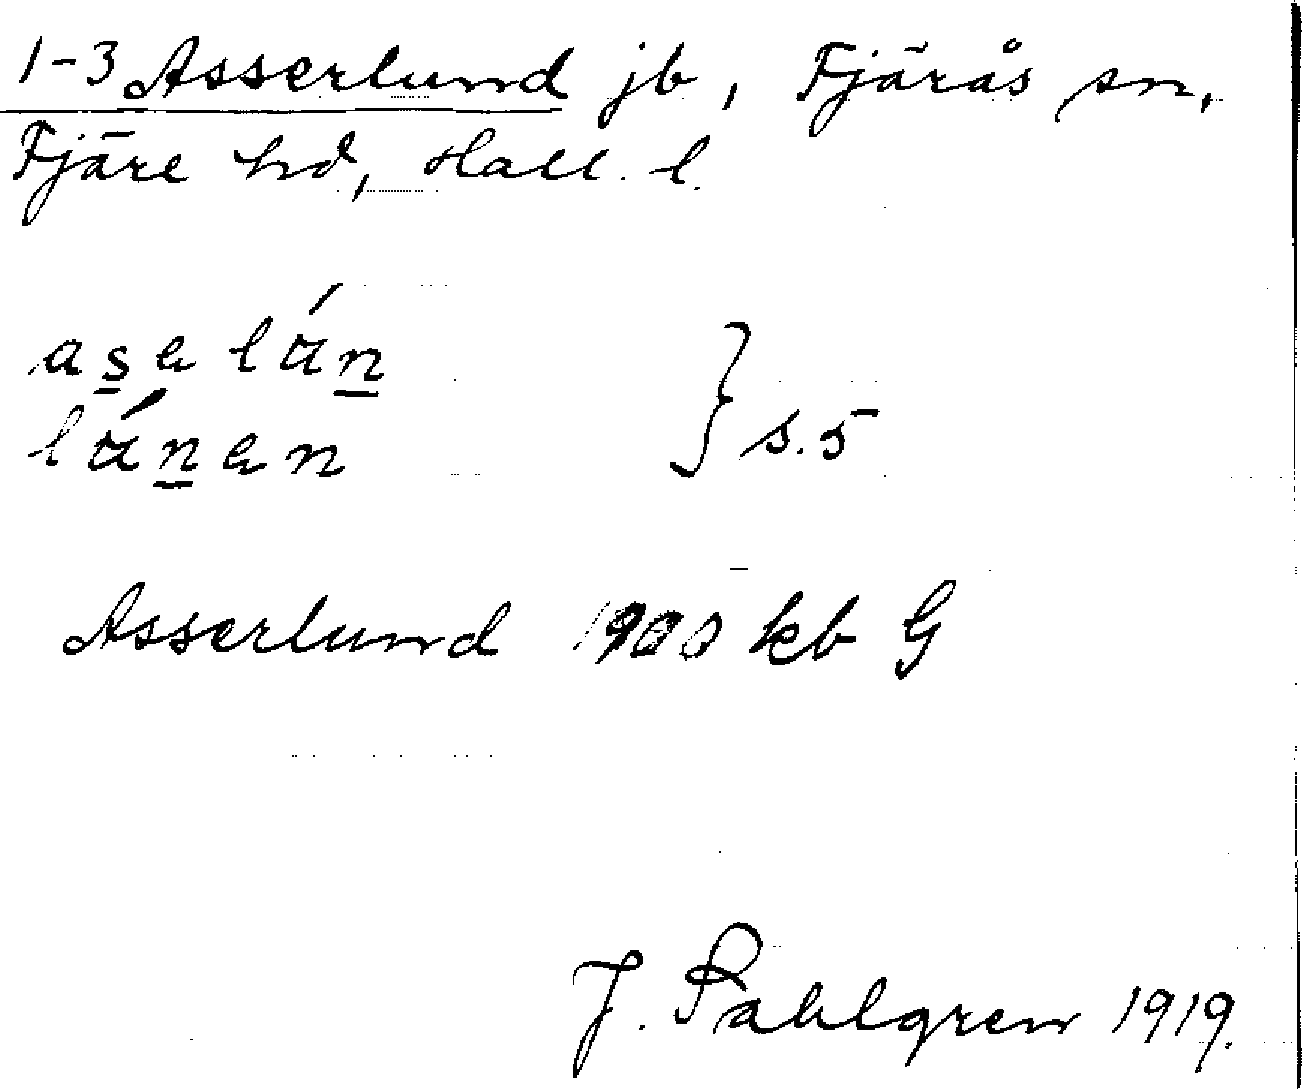 1-3 Asserlund jb, Fjärås sn,
Fjäre hd, Hall. l.
as̲ə lán̲
lán̲ən
} s. 5
Asserlund 1900 kb G
J. Sahlgren 1919.